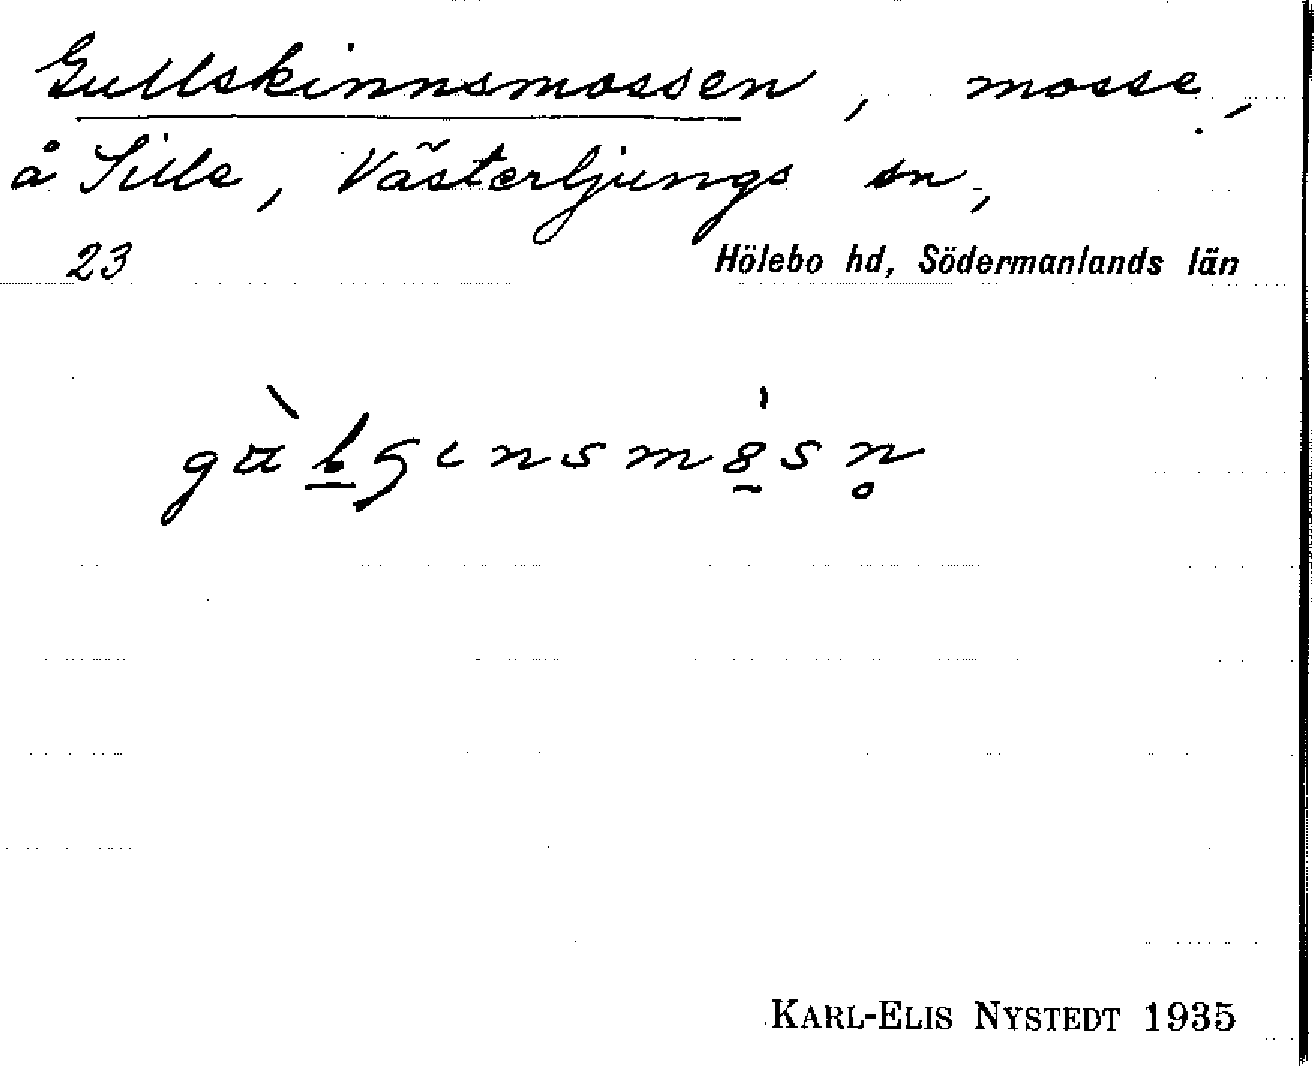 Gullskinnsmossen, mosse,
å Sille, Västerljungs sn,
23 Hölebo hd, Södermanlands län
KARL-ELIS NYSTEDT 1935